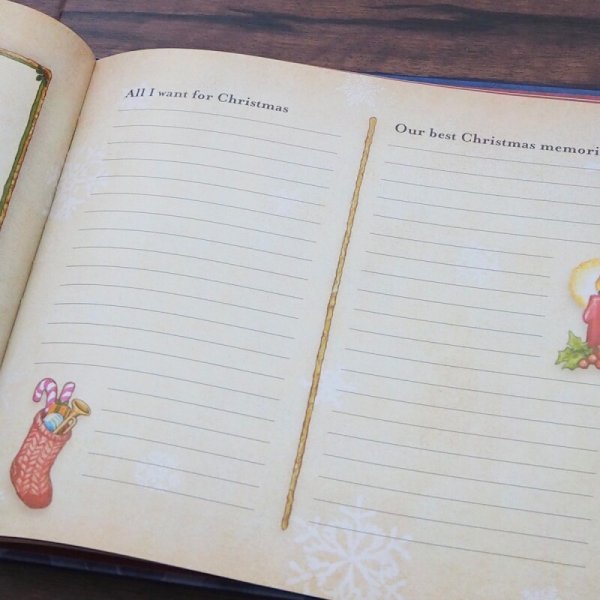 All I want for Christmas
Our best Christmas memori